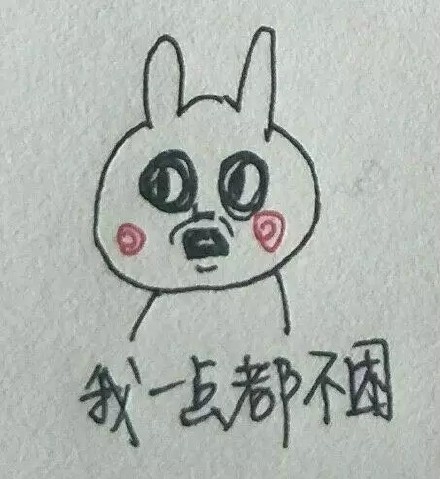 我一点都不困